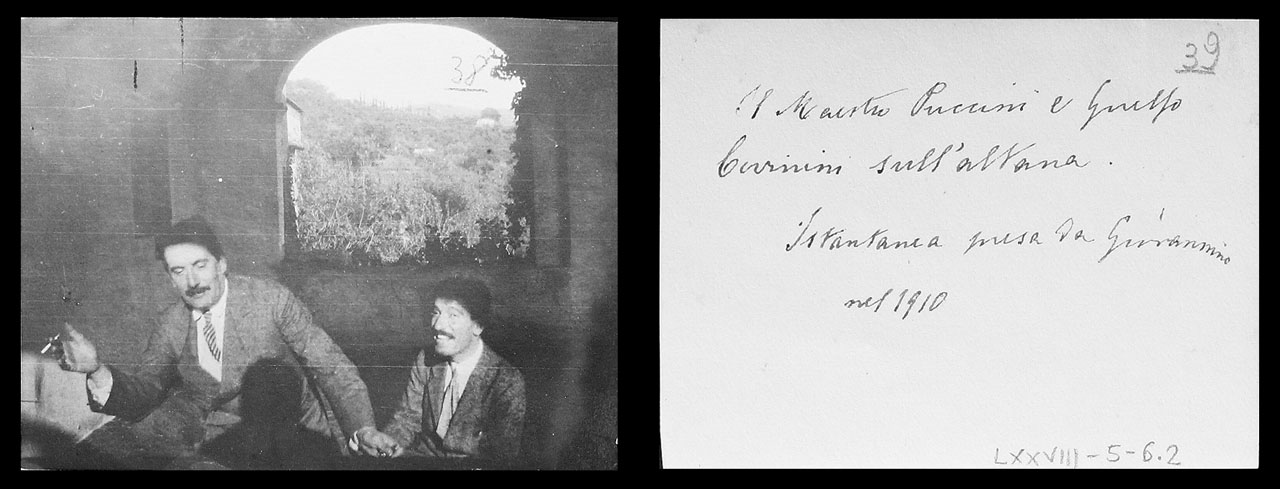 38
39
Il Maestro Puccini e Guelfo
Civinini sull'altana.
Istantanea presa da Giovannino
nel 1910
LXXVIII-5-6.2